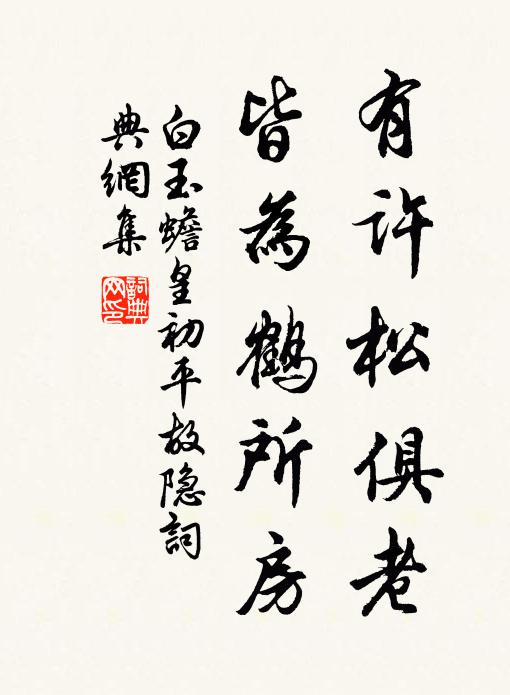 有许松俱老
皆為鶴所房
白玉蟾皇初平故隐詞
典網集
詞典網印